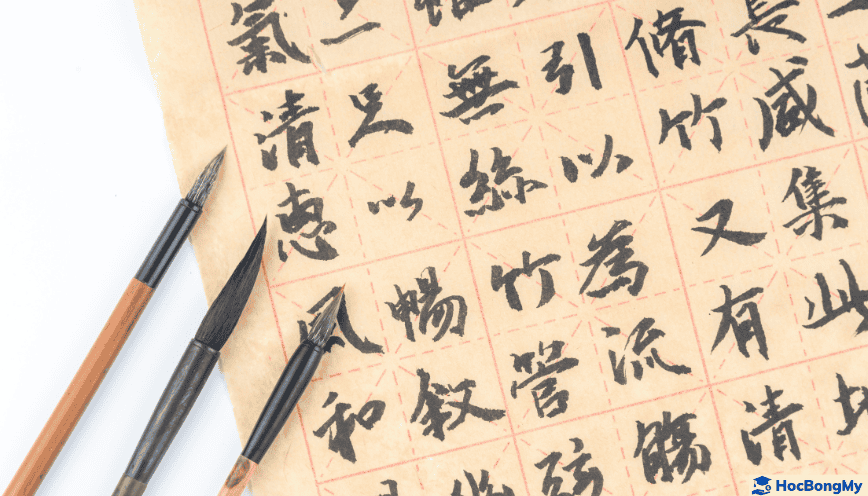 長咸集此
脩竹又有清
引以為流觴
無絲竹管弦
足以暢敘
氣清惠風和
HocBongMy